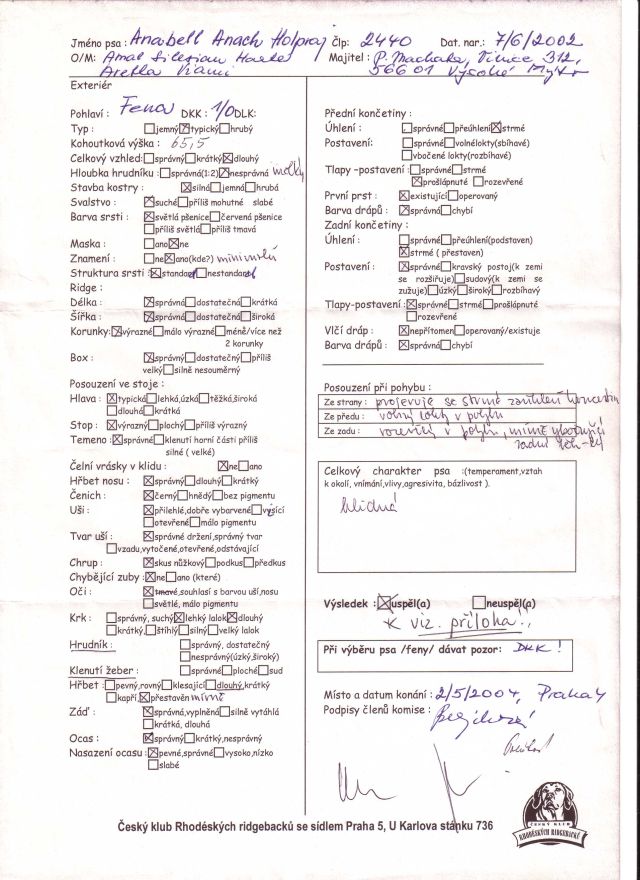 Jméno psa : Anabell Anach Holpraj Člp: 2440 Dat. nar.: 7/6/2002
O/M: Amal Silesian Majitel : P. Machata, 312,
Aretha Viami 56601 Vysoké Mýto
Exteriér
Pohlaví : Fena DKK : 1/0 DLK:
Typ : jemný typický hrubý
Kohoutková výška : 65,5
Celkový vzhled: správný krátký dlouhý
Hloubka hrudníku : správná(1:2) nesprávná mělký
Stavba kostry : silná jemná hrubá
Svalstvo : suché příliš mohutné slabé
Barva srsti : světlá pšenice červená pšenice
příliš světlá příliš tmavá
Maska : ano ne
Znamení : ne ano(kde?)
Struktura srsti : standard nestandard
Ridge :
Délka : správná dostatečná krátká
Šířka : správná dostatečná široká
Korunky: výrazné málo výrazné méně/více než
2 korunky
Box : správný dostatečný příliš
velký silně nesouměrný
Posouzení ve stoje :
Hlava : typická lehká,úzká těžká,široká
dlouhá krátká
Stop : výrazný plochý příliš výrazný
Temeno : správné klenutí horní části příliš
silné ( velké)
Čelní vrásky v klidu : ne ano
Hřbet nosu : správný dlouhý krátký
Čenich : černý hnědý bez pigmentu
Uši : přilehlé,dobře vybarvené visící
otevřené málo pigmentu
Tvar uší : správné držení, správný tvar
vzadu,vytočené,otevřené,odstávající
Chrup : skus nůžkový podkus předkus
Chybějící zuby : ne ano (které)
Oči : tmavé,souhlasí s barvou uší,nosu
světlé, málo pigmentu
Krk : správný, suchý lehký lalok dlouhý
krátký štíhlý silný velký lalok
Hrudník : správný, dostatečný
nesprávný(úzký,široký)
Klenutí žeber : správné ploché sud
Hřbet : pevný,rovný klesající dlouhý,krátký
kapří přestavěn mírně
Záď : správná,vyplněná silně vytáhlá
krátká, dlouhá
Ocas : správný krátký,nesprávný
Nasazení ocasu : pevné,správné vysoko,nízko
slabé
Přední končetiny :
Úhlení : správné přeúhlení strmé
Postavení: správné volnélokty(sbíhavé)
vbočené lokty(rozbíhavé)
Tlapy –postavení : správné strmé
prošlápnuté rozevřené
První prst : existující operovaný
Barva drápů : správná chybí
Zadní končetiny :
Úhlení : správné přeúhlení(podstaven)
strmé ( přestaven)
Postavení : správné kravský postoj(k zemi
se rozšiřuje) sudový(k zemi se
zužuje) úzký široký rozbíhavý
Tlapy-postavení : správné strmé prošlápnuté
rozevřené
Vlčí dráp : nepřítomen operovaný/existuje
Barva drápů : správná chybí
Posouzení při pohybu :
Ze strany : projevuje se strmé zaúhlení končetin
Ze předu : volný lokty v pohybu
Ze zadu : v pohybu, mírně vybočující
zadní
Celkový charakter psa :(temperament,vztah
k okolí, vnímání,vlivy,agresivita, bázlivost ).
klidná
Výsledek : uspěl(a) neuspěl(a)
viz. příloha!!
Při výběru psa /feny/ dávat pozor: DKK !
Místo a datum konání : 2/5/2004, Praha 4
Podpisy členů komise :
ČESKÝ KLUB
RHODÉSKÝCH RIDGEBACKŮ
Český klub Rhodéských ridgebacků se sídlem Praha 5, U Karlova stánku 736